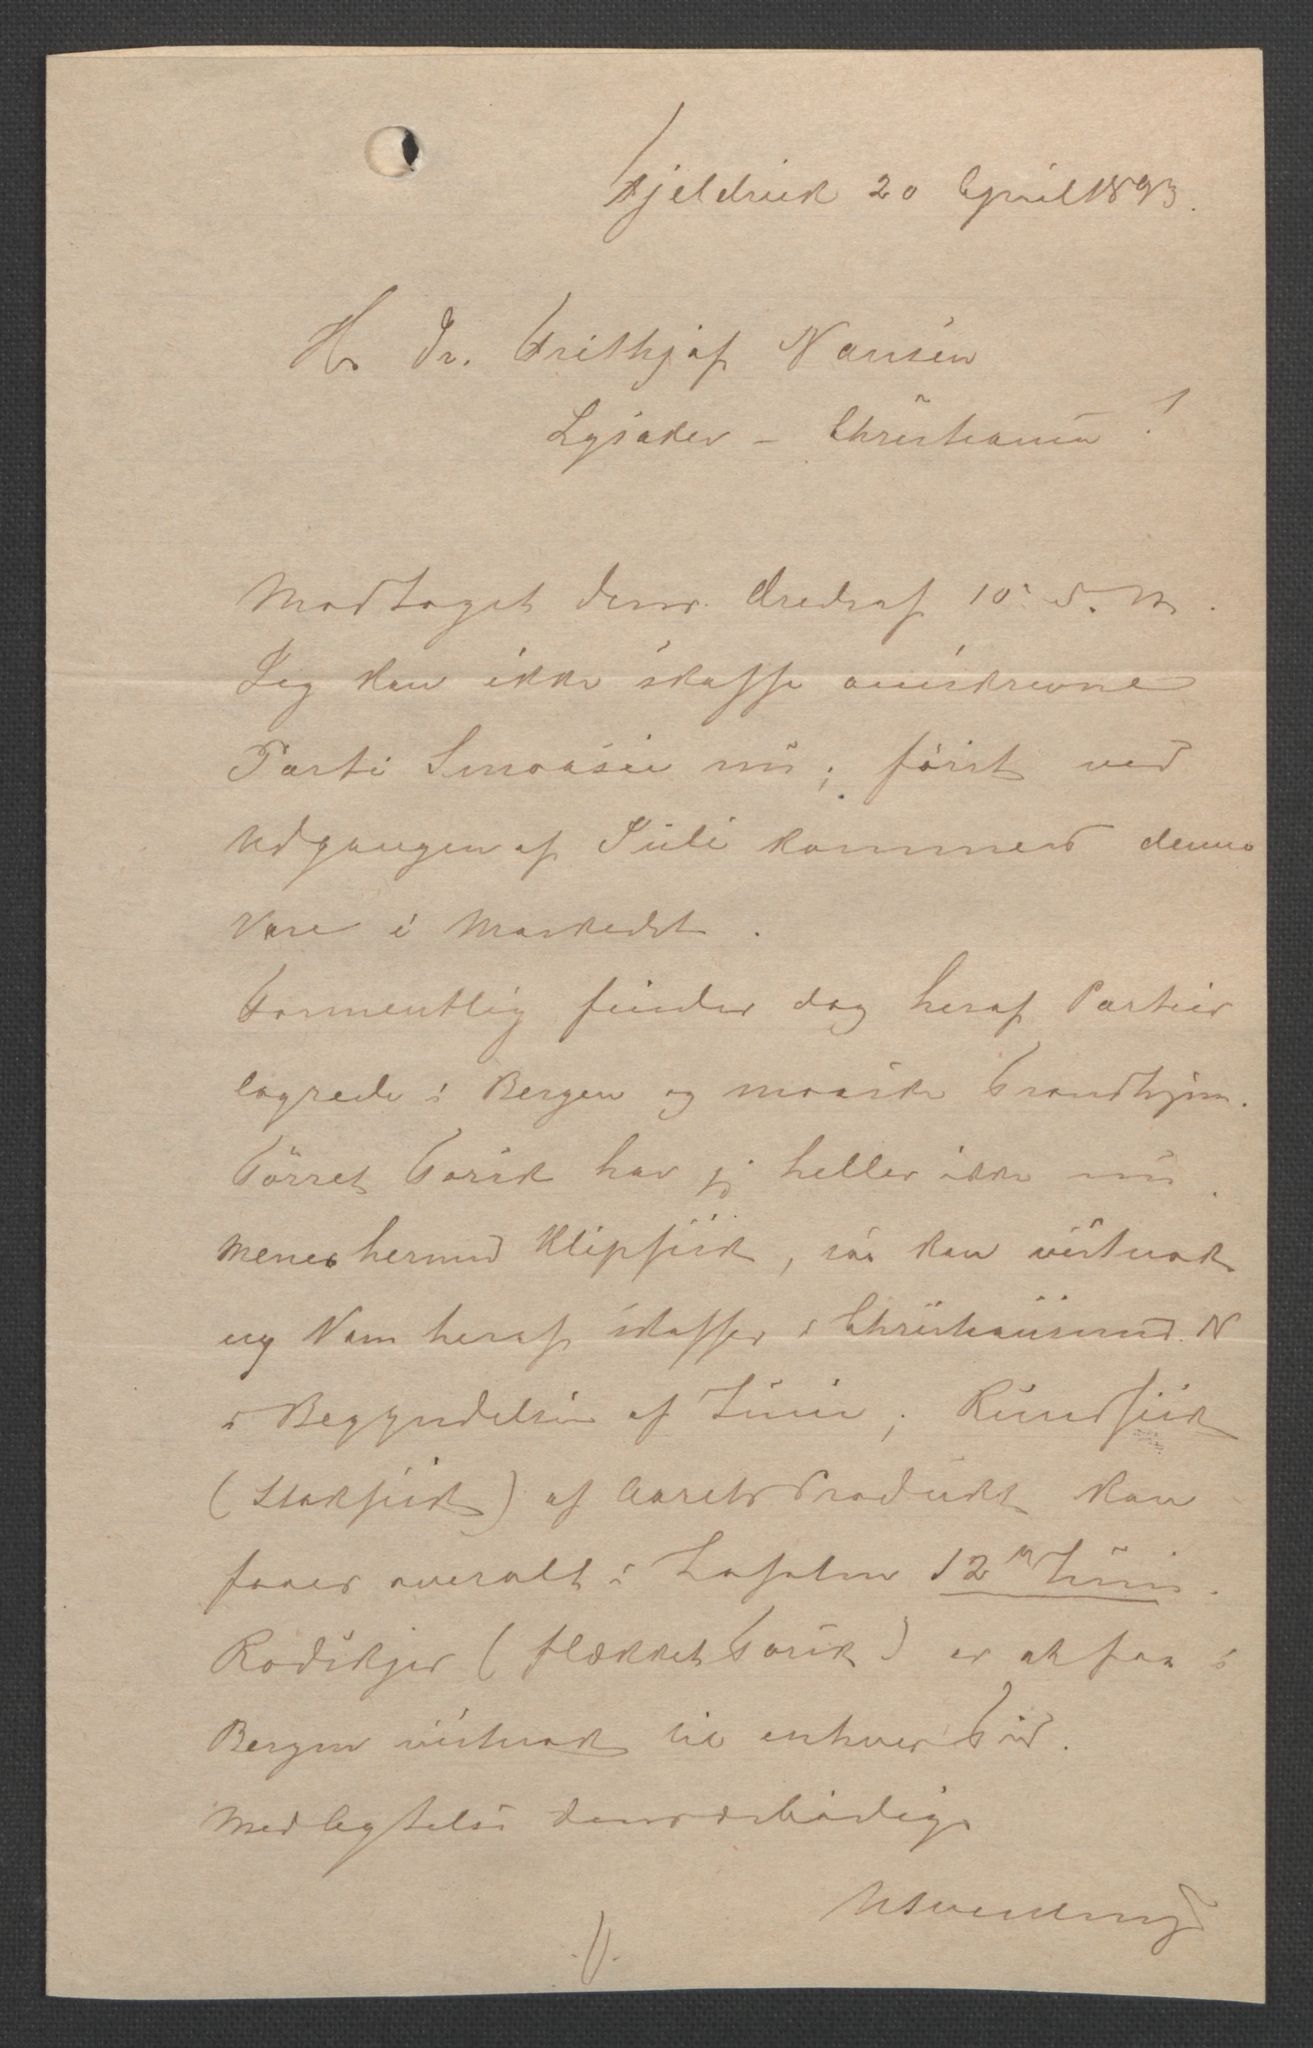 Kjeldvik 20 April 1893.
Hr Dr. Frithjof Nansen
Lysaker - Christiania!
Modtaget Deres Ærede af 10 d. M.
Jeg kan ikke skaffe omskrevne
Parti Smaasei nu; først ved
Udgangen af Juli kommer denne
Vare i Markedet.
Formentlig findes dog heraf Partier
lagrede i Bergen og maaske Trondhjem.
Tørret Torsk har jeg heller ikke nu.
Menes hermed Klipfisk, saa kan vistnok
ny Vare heraf skaffes i Christiansund N
i Begyndelsen af Juni; Rundfisk
(Stokfisk) af Aarets Produkt kan
faaes overalt i Lofoten 12te Juni.
Rodskjær (flækket Torsk) er at faa i
Bergen vistnok til enhver Tid.
Med Agtelse Deres ærbødige
./.